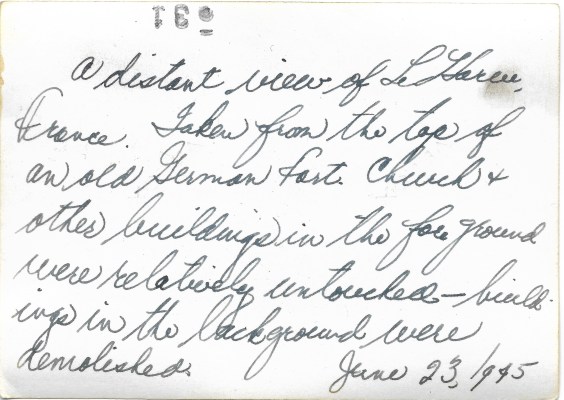 831
a distant view of Le Havre,
France. Taken from the top of
an old German Fort. Church +
other buildings in the fore ground
were relatively untouched - build-
ings in the background were
demolished. June 23, 1945